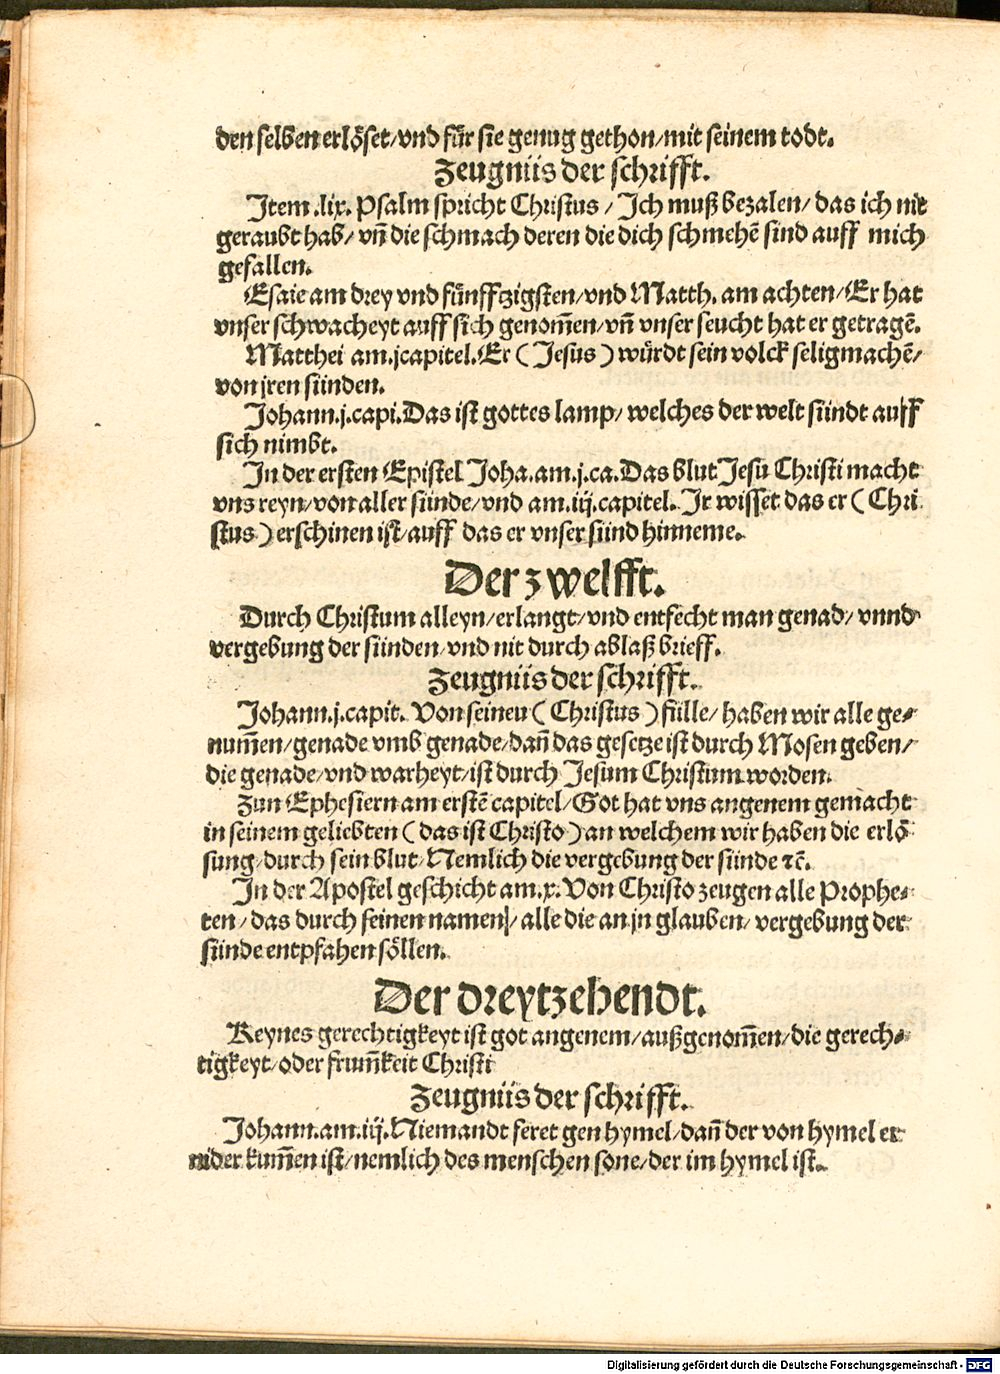 den selben erlöset/vnd für sie genug gethon/mit seinem todt.
Zeugnüs der schrifft.
Item .lix. Psalm spricht Christus / Ich muß bezalen/ das ich nit
geraubt hab/ vñ die schmach deren die dich schmehẽ sind auff mich
gefallen.
Esaie am drey vnd fünfftzigsten/vnd Matth. am achten/Er hat
vnser schwacheyt auff sich genom̃en/vñ vnser seucht hat er getragẽ.
Matthei am.j capitel.Er ( Jesus ) würdt sein volck seligmachẽ/
von jren sünden.
Johann.j.capi.Das ist gottes lamp/ welches der welt sündt auff
sich nimbt.
In der ersten Epistel Joha.am.j.ca.Das blut Jesu Christi macht
vns reyn/von aller sünde/vnd am.iij.capitel. Ir wisset das er ( Chri
stus ) erschinen ist/auff das er vnser sünd hinneme.
Der zwelfft.
Durch Christum alleyn/erlangt/vnd entfecht man genad/ vnnd
vergebung der sünden/vnd nit durch ablaß brieff.
Zeugnüs der schrifft.
Johann.j.capit. Von seineu ( Christus ) fülle/ haben wir alle ge⸗
num̃en/genade vmb genade/dañ das gesetze ist durch Mosen geben/
die genade/vnd warheyt/ist durch Jesum Christum worden.
Zun Ephesiern am erstẽ capitel/Got hat vns angenem gemacht
in seinem geliebten ( das ist Christo ) an welchem wir haben die erlö
sung/durch sein blut/Nemlich die vergebung der sünde ⁊c̃.
In der Apostel geschicht am.x.Von Christo zeugen alle Prophe⸗
ten/das durch seinen namen/ alle die an jn glauben/ vergebung der
sünde entpfahen söllen.
Der dreytzehendt.
Keynes gerechtigkeyt ist got angenem/außgenom̃en/die gerech⸗
tigkeyt/oder frum̃keit Christi
Zeugnüs der schrifft.
Johann.am.iij.Niemandt feret gen hymel/dañ der von hymel er
nider kum̃en ist/nemlich des menschen sone/der im hymel ist.
Digitalisierung gefördert durch die Deutsche Forschungsgemeinschaft - DFG